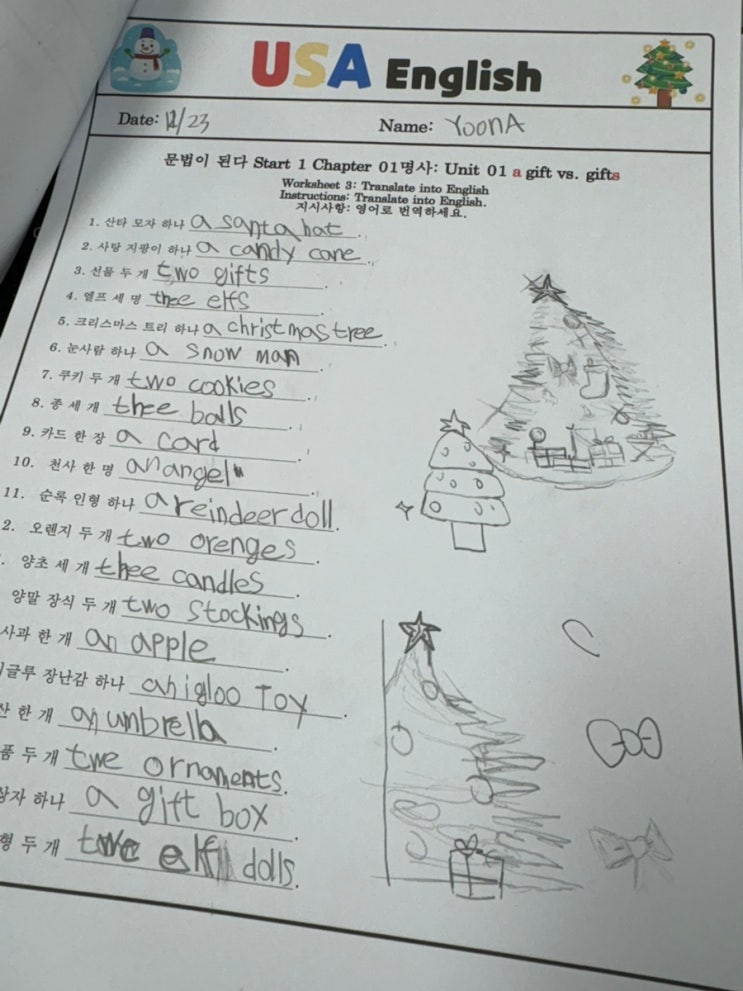 USA English
Date: 12/23 Name: YoonA
문법이 된다 Start 1 Chapter 01명사: Unit 01 a gift vs. gifts
Worksheet 3: Translate into English
Instructions: Translate into English.
지시사항: 영어로 번역하세요.
1. 산타 모자 하나 a santa hat.
2. 사탕 지팡이 하나 a candy cane.
3. 선물 두 개 two gifts.
4. 엘프 세 명 thee elfs.
5. 크리스마스 트리 하나 a christmas tree.
6. 눈사람 하나 a snow man.
7. 쿠키 두 개 two cookies.
8. 종 세 개 thee balls.
9. 카드 한 장 a card.
10. 천사 한 명 an angel.
11. 순록 인형 하나 a reindeer doll.
2. 오렌지 두 개 two orenges.
. 양초 세 개 thee candles.
양말 장식 두 개 two stockings.
사과 한 개 an apple.
글루 장난감 하나 an igloo Toy.
산 한 개 an umbrella.
품 두 개 twe ornaments.
상자 하나 a gift box.
형 두 개 elf dolls.